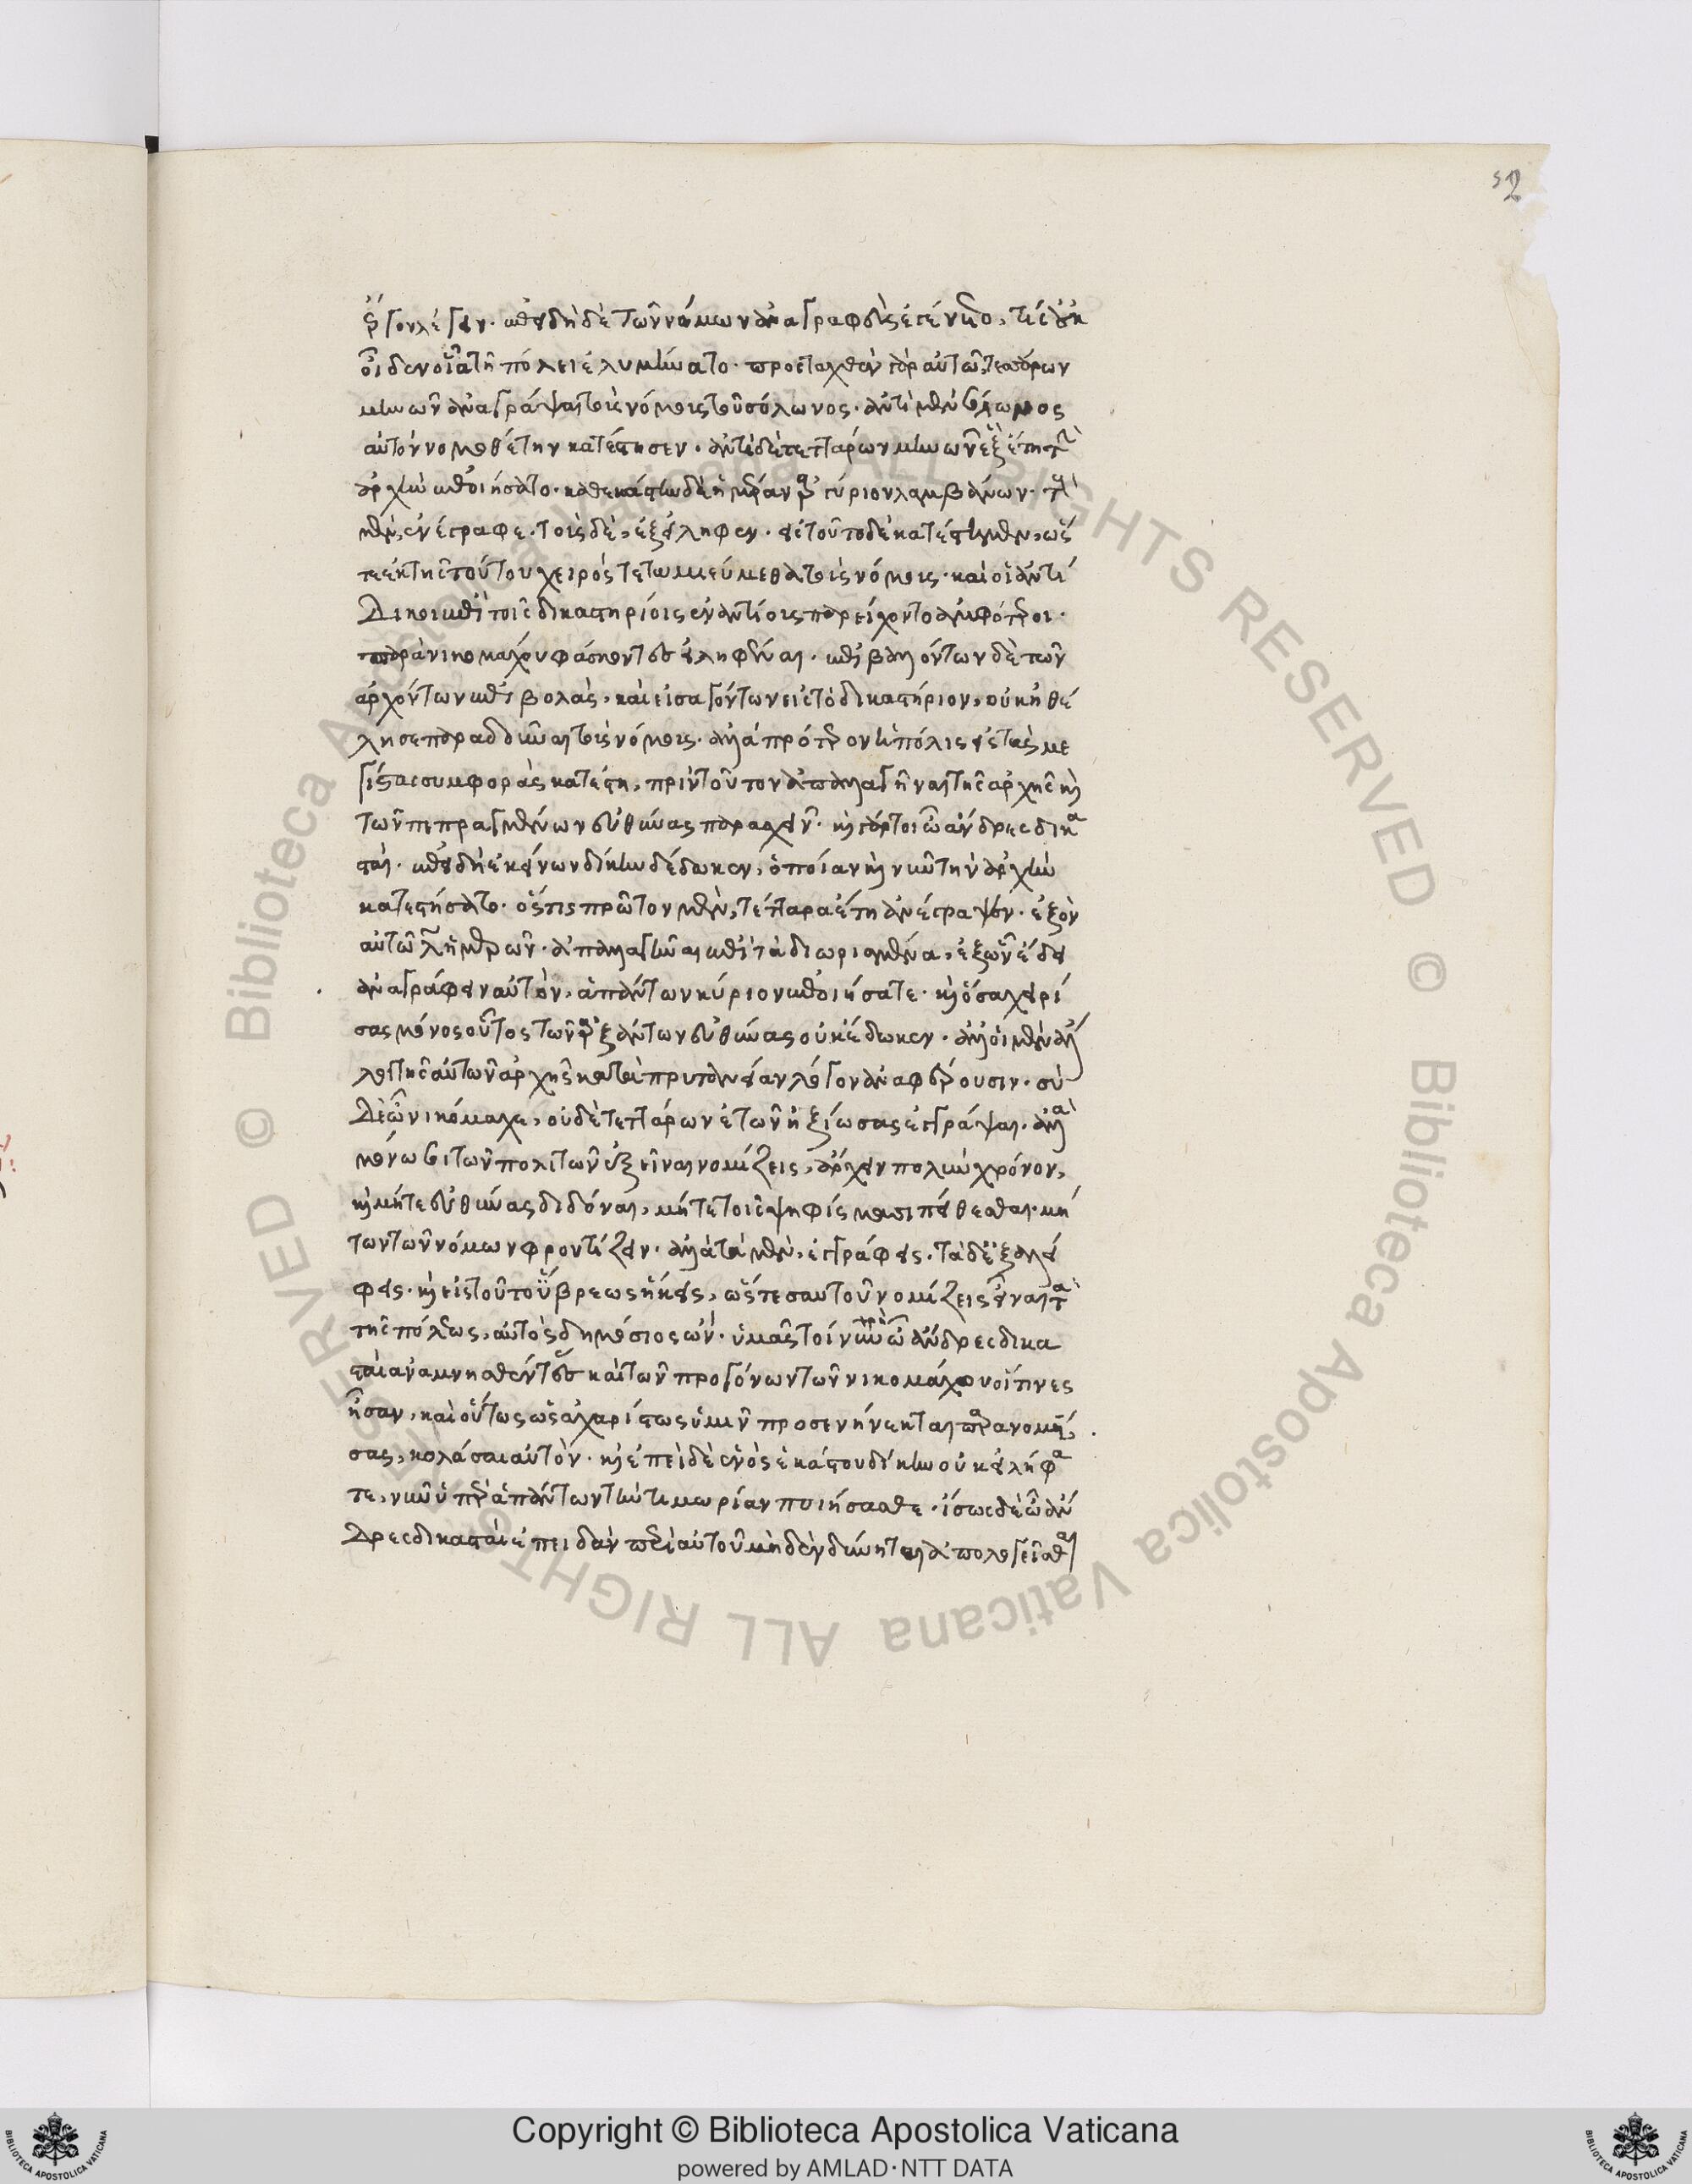 ἔργον λέγειν. ἐπειδὴ δὲ τῶν νόμων ἀναγραφεὺς ἐγένετο, τίς οὐκ
οἶδεν οἷα τῆ πόλει ἐλυμήνατο. προσταχθὲν γὰρ αὐτῶ, τεσσάρων
μηνῶν ἀναγράψαι τοὺς νόμους τοῦ σόλωνος. ἀντὶ μὲν σόλωνος
αὐτὸν νομοθέτην κατέστησεν. ἀντὶ δὲ τεττάρων μηνῶν ἑξέτη τὴν
ἀρχὴν ἐποιήσατο. καθεκάστην δὲ ἡμέραν ἀργύριον λαμβάνων. τοὺς
μὲν, ἐνέγραφε. τοὺς δὲ, ἐξείληφεν. εἰς τοῦτο δὲ κατέστημεν, ὥσ
τε ἐκ τῆς τούτου χειρὸς τεταμιεύμεθα τοὺς νόμους. καὶ οἱ ἀντί
δικοι ἐπὶ τοῖς δικαστηρίοις ἐναντίους παρείχοντο ἀμφότεροι.
παρὰ νικομάχου φάσκοντες εἰληφέναι. ἐπιβαλλόντων δὲ τῶν
ἀρχόντων ἐπιβολὰς, καὶ εἰσαγόντων εἰς τὸ δικαστήριον, οὐκ ἠθέ
λησε παραδοῦναι τοὺς νόμους. ἀλλὰ πρότερον ἡ πόλις εἰς τὰς με
γίστας συμφορὰς κατέστη, πρὶν τοῦτον ἀπαλλαγῆναι τῆς ἀρχῆς καὶ
τῶν πεπραγμένων εὐθύνας παρασχεῖν. καὶ γάρ τοι ὦ ἄνδρες δικα
σταί. ἐπειδὴ ἐκείνων δίκην δέδωκεν, ὁποίαν καὶ νῦν τὴν ἀρχὴν
κατεστήσατο. ὅστις πρῶτον μὲν, τέτταρα ἔτη ἀνέγραψεν. ἐξὸν
αὐτῶ λ ἡμερῶν. ἀπαλλαγῆναι ἐπὶ τὰ διωρισμένα, ἐξ ὧν ἔδει
ἀναγράφειν αὐτὸν, ἁπάντων κύριον ἐποιήσατε. καὶ ὅσα χειρί
σας μόνος οὗτος τῶν ἀρξάντων εὐθύνας οὐκ ἔδωκεν. ἀλλ' οἱ μὲν ἄλ
λοι τῆς αὐτῶν ἀρχῆς κατὰ πρυτανείαν λόγον ἀναφέρουσιν. σὺ
δὲ ὦ νικόμαχε, οὐδὲ τεττάρων ἐτῶν ἠξίωσας ἐγγράψαι. ἀλλὰ
μόνω σοι τῶν πολιτῶν ἐξεῖναι νομίζεις, ἄρχειν πολὺν χρόνον,
καὶ μήτε εὐθύνας διδόναι, μήτε τοῖς ψηφίσμασι πείθεσθαι. μή
των τῶν νόμων φροντίζειν. ἀλλὰ τὰ μὲν, ἐγγράφεις. τὰ δ' ἐξαλεί
φεις. καὶ εἰς τοῦτο ὕβρεως ἥκεις, ὥστε σαυτοῦ νομίζεις εἶναι τὰ
τῆς πόλεως, αὐτὸς δημόσιος ὤν. ὑμᾶς τοίνυν χρὴ ὦ ἄνδρες δικα
σταὶ ἀναμνησθέντας καὶ τῶν προγόνων τῶν νικομάχου οἵτινες
ἦσαν, καὶ οὕτως ὡς ἀχαρίστως ὑμῖν προσενήνεκται παρανομή,
σας, κολάσαι αὐτὸν. καὶ ἐπεὶ δὲ ἑνὸς ἑκάστου δίκην οὐκ εἰλήφα
τε, νῦν ὑπὲρ ἁπάντων τὴν τιμωρίαν ποιήσασθε. ἴσως δὲ ὦ ἄν
δρες δικασταὶ ἐπειδὰν περὶ αὐτοῦ μηδὲν δύνηται ἀπολογεῖσθαι
Copyright © Biblioteca Apostolica Vaticana
powered by AMLAD·NTT DATA